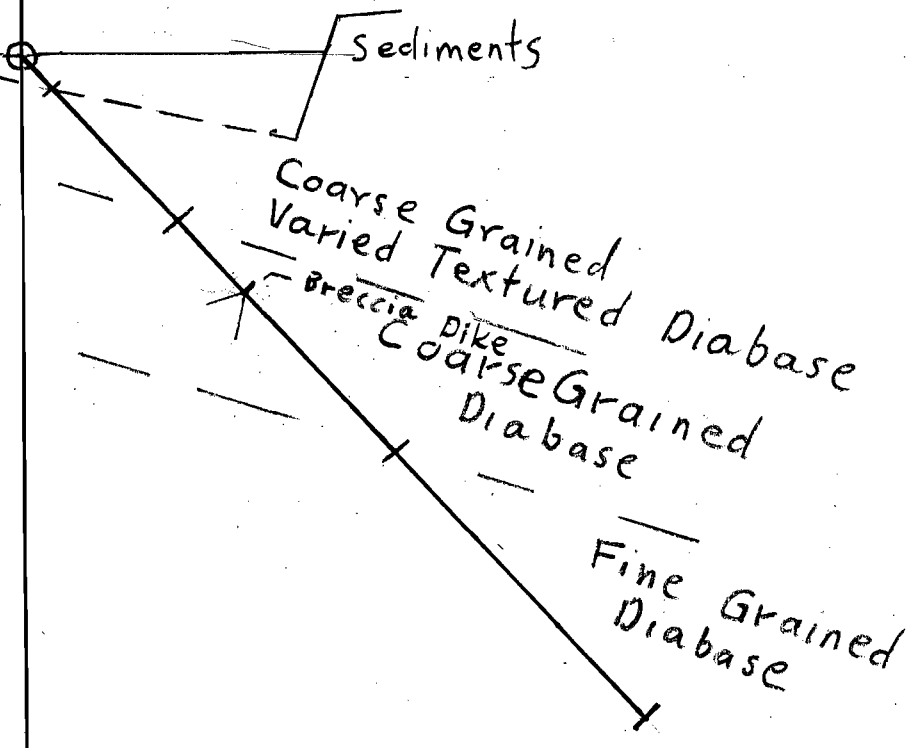 Sediments
Coarse Grained
Varied Textured Diabase
Breccia Dike
Coarse Grained
Diabase
Fine Grained
Diabase